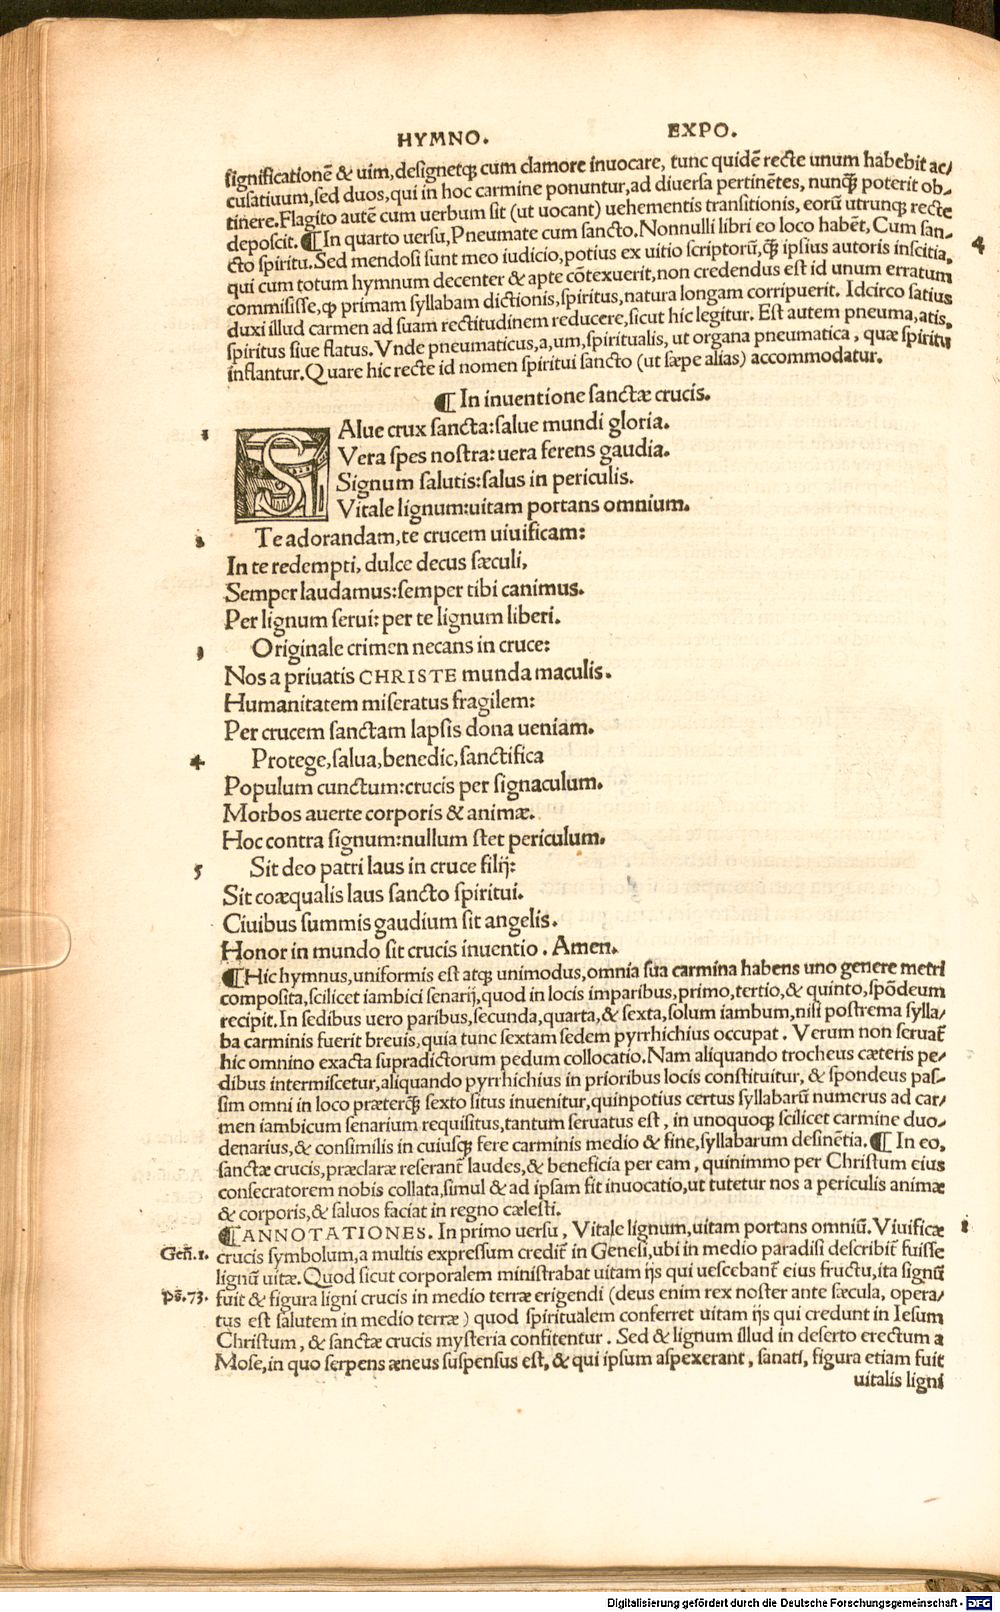 HYMNO. EXPO.
significationē & uim, designetq; cum clamore inuocare, tunc quidē recte unum habebit ac/
cusatiuum, sed duos, qui in hoc carmine ponuntur, ad diuersa pertinētes, nunq̃ poterit ob-
tinere. Flagito autē cum uerbum sit (ut uocant) uehementis transitionis, eorū utrunq; recte
deposcit. ¶ In quarto uersu, Pneumate cum sancto. Nonnulli libri eo loco habēt, Cum san- 4
cto spiritu. Sed mendosi sunt meo iudicio, potius ex uitio scriptorū, q̃ ipsius autoris inscitia,
qui cum totum hymnum decenter & apte cōtexuerit, non credendus est id unum erratum
commisisse, ꝙ primam syllabam dictionis, spiritus, natura longam corripuerit. Idcirco satius
duxi illud carmen ad suam rectitudinem reducere, sicut hic legitur. Est autem pneuma, atis,
spiritus siue flatus. Vnde pneumaticus, a, um, spiritualis, ut organa pneumatica, quæ spiritu
inflantur. Quare hic recte id nomen spiritui sancto (ut sæpe alias) accommodatur.
¶ In inuentione sanctæ crucis.
1 SAlue crux sancta: salue mundi gloria.
Vera spes nostra: uera ferens gaudia.
Signum salutis: salus in periculis.
Vitale lignum: uitam portans omnium.
2 Te adorandam, te crucem uiuificam:
In te redempti, dulce decus sæculi,
Semper laudamus: semper tibi canimus.
Per lignum serui: per te lignum liberi.
3 Originale crimen necans in cruce:
Nos a priuatis CHRISTE munda maculis.
Humanitatem miseratus fragilem:
Per crucem sanctam lapsis dona ueniam.
4 Protege, salua, benedic, sanctifica
Populum cunctum: crucis per signaculum.
Morbos auerte corporis & animæ.
Hoc contra signum: nullum stet periculum.
5 Sit deo patri laus in cruce filij:
Sit coæqualis laus sancto spiritui.
Ciuibus summis gaudium sit angelis.
Honor in mundo sit crucis inuentio. Amen.
¶ Hic hymnus, uniformis est atq; unimodus, omnia sua carmina habens uno genere metri
composita, scilicet iambici senarij, quod in locis imparibus, primo, tertio, & quinto, spōdeum
recipit. In sedibus uero paribus, secunda, quarta, & sexta, solum iambum, nisi postrema sylla/
ba carminis fuerit breuis, quia tunc sextam sedem pyrrhichius occupat. Verum non seruat̃
hic omnino exacta supradictorum pedum collocatio. Nam aliquando trocheus cæteris pe/
dibus intermiscetur, aliquando pyrrhichius in prioribus locis constituitur, & spondeus pas-
sim omni in loco præterq̃ sexto situs inuenitur, quinpotius certus syllabarū numerus ad car/
men iambicum senarium requisitus, tantum seruatus est, in unoquoq; scilicet carmine duo-
denarius, & consimilis in cuiusq; fere carminis medio & fine, syllabarum desinētia. ¶ In eo,
sanctæ crucis, præclaræ reserant̃ laudes, & beneficia per eam, quinimmo per Christum eius
consecratorem nobis collata, simul & ad ipsam fit inuocatio, ut tutetur nos a periculis animæ
& corporis, & saluos faciat in regno cælesti.
¶ ANNOTATIONES. In primo uersu, Vitale lignum, uitam portans omniū. Viuificæ 1
Geñ. 1. crucis symbolum, a multis expressum credit̃ in Genesi, ubi in medio paradisi describit̃ fuisse
lignū uitæ. Quod sicut corporalem ministrabat uitam ijs qui uescebant̃ eius fructu, ita signū
ps̄. 73. fuit & figura ligni crucis in medio terræ erigendi (deus enim rex noster ante sæcula, opera/
tus est salutem in medio terræ) quod spiritualem conferret uitam ijs qui credunt in Iesum
Christum, & sanctæ crucis mysteria confitentur. Sed & lignum illud in deserto erectum a
Mose, in quo serpens æneus suspensus est, & qui ipsum aspexerant, sanati, figura etiam fuit
uitalis ligni
Digitalisierung gefördert durch die Deutsche Forschungsgemeinschaft - DFG